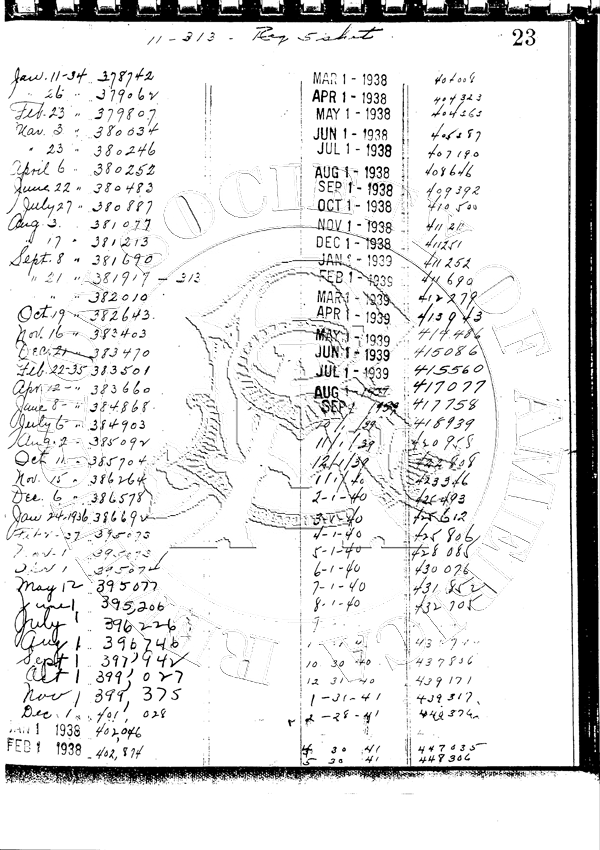 11-313 - Reg 5 shot
23
Jan. 11-34 378742
" 26 " 379062
Feb. 23 " 379807
Mar. 3 " 380034
" 23 " 380246
April 6 " 380252
June 22 " 380483
July 27 " 380887
Aug 3. " 381077
" 17 " 381213
Sept. 8 " 381690
" 21 " 381917 - 313
" " 382010
Oct 19 " 382643
Nov. 16 " 383403
Dec. 21 - 383470
Feb. 22-35 383501
Apr. 12- " 383660
June 8- " 384868
July 6- " 384903
Aug. 2- " 385092
Oct 11 - 385704
Nov. 15 " 386264
Dec. 6 " 386578
Jan 24-1936 386692
395073
395074
May 12 395077
June 1 395,206
July 1 396226
Aug 1 396746
Sept 1 397,942
Oct 1 399,027
Nov 1 399,375
Dec. 1. 401,028
JAN 1 1938 402,046
FEB 1 1938 402,874
MAR 1 - 1938 404008
APR 1 - 1938 404323
MAY 1 - 1938 404565
JUN 1 - 1938 405587
JUL 1 - 1938 407190
AUG 1 - 1938 408646
SEP 1 - 1938 409392
OCT 1 - 1938 410500
NOV 1 - 1938 41121
DEC 1 - 1938 411251
JAN 3 - 1939 411252
FEB 1 - 1939 411690
MAR 1 - 1939 412279
APR 1 - 1939 413943
MAY 1 - 1939 414486
JUN 1 - 1939 415086
JUL 1 - 1939 415560
AUG 1 - 1939 417077
SEP 1 1939 417758
10/1/39 418939
11/1/39
12/1/39 422808
1/1/40 423346
2-1-40 425493
3-1-40 425612
4-1-40 425806
5-1-40 428085
6-1-40 430076
7-1-40 431852
8-1-40 432705
9
10 30 40 437836
12 31 40 439171
1-31-41 439317
2-28-41 442376
4 30 41 447035
5 30 41 448306
SOCIETY OF AMERICA